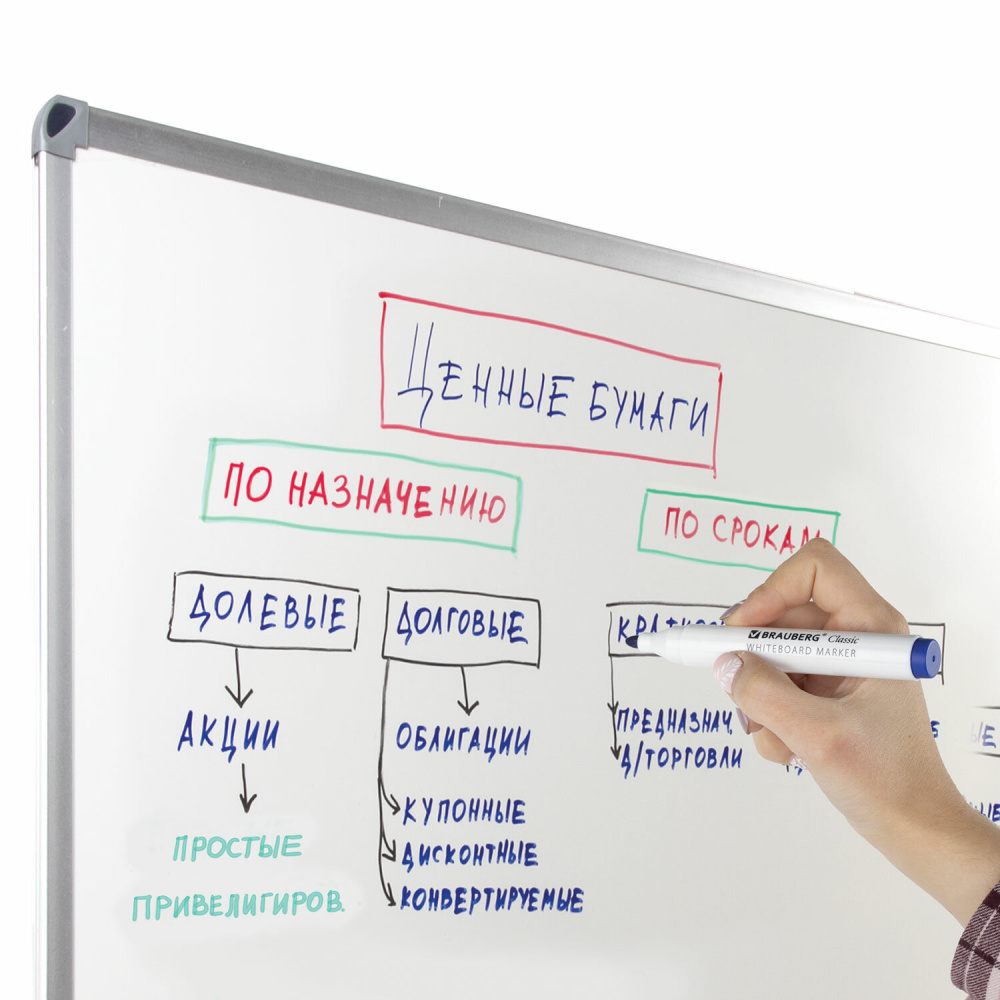 ЦЕННЫЕ БУМАГИ
ПО НАЗНАЧЕНИЮ
ПО СРОКАМ
ДОЛЕВЫЕ
ДОЛГОВЫЕ
BRAUBERG® Classic
WHITEBOARD MARKER
АКЦИИ
ОБЛИГАЦИИ
ПРЕДНАЗНАЧ.
Д/ТОРГОВЛИ
КУПОННЫЕ
ДИСКОНТНЫЕ
КОНВЕРТИРУЕМЫЕ
ПРОСТЫЕ
ПРИВЕЛИГИРОВ.